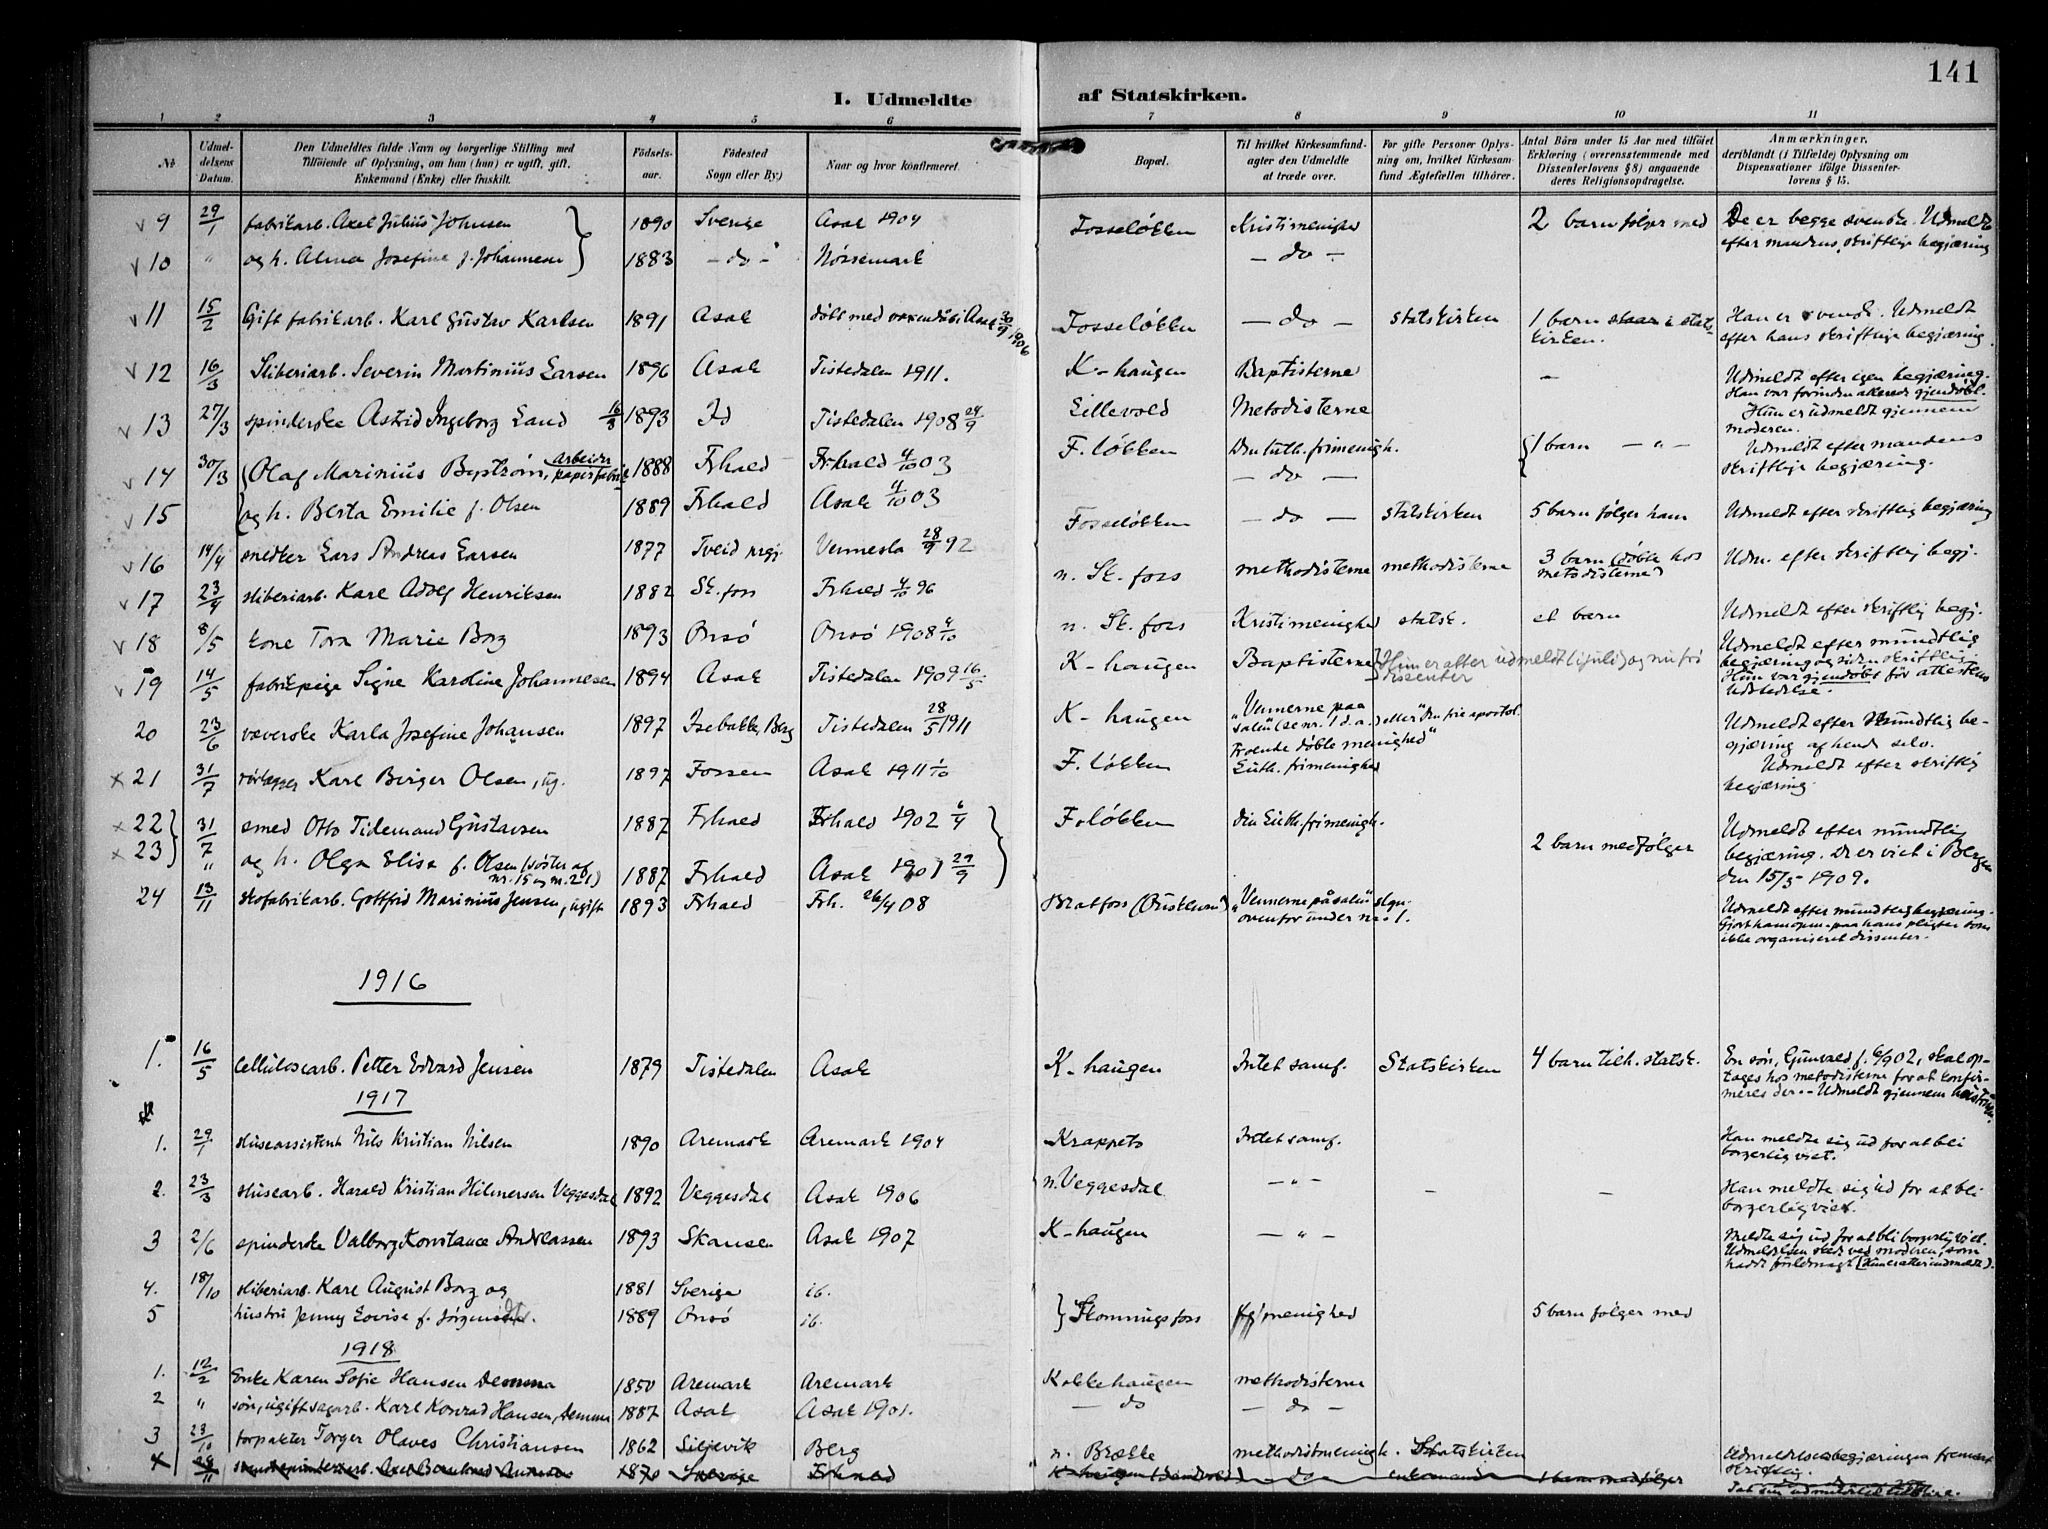 141
I. Udmeldte af Statskirken.
1 2 3 4 5 6 7 8 9 10 11
№
Udmeldelsens Datum.
Den Udmeldtes fulde Navn og borgerlige Stilling med Tilföiende af Oplysning, om han (hun) er ugift, gift, Enkemand (Enke) eller fraskilt.
Födselsaar.
Födested Sogn eller By)
Naar og hvor konfirmeret.
Bopæl.
Til hvilket Kirkesamfund agter den Udmeldte at træde over.
For gifte Personer Oplysning om, hvilket Kirkesamfund Ægtefællen tilhörer.
Antal Börn under 15 Aar med tilföiet Erklæring (overensstemmende med Dissenterlovens § 8) angaaende deres Religionsopdragelse.
Anmærkninger, deriblandt (i Tilfælde) Oplysning om Dispensationer ifölge Dissenterlovens § 15.
v 9 29/1 fabrikarb. Axel Julius Johnsen 1890 Sverige Asak 1904 Fosseløkken Kristi menighed 2 barn følger med De er begge svenske. Udmeldt
efter mandens skriftlige begjæring
v 10 " og h. Alma Josefine f. Johannesen 1883 - do - Nössemark - do -
v 11 15/2 Gift fabrikarb. Karl Gustav Karlsen 1891 Asak døbt med voxendåb i Asak 30/9 1906 Fosseløkken - do - statskirken 1 barn staar i statskirken. Han er svensk. Udmeldt
efter hans skriftlige begjæring.
v 12 16/3 Sliberiarb. Severin Martinius Larsen 1896 Asak Tistedalen 1911. K-haugen Baptisterne - Udmeldt efter egen begjæring.
Han var forinden allerede gjendøbt.
v 13 27/3 spinderske Astrid Ingeborg Lund 16/3 1893 Id Tistedalen 1908 24/9 Lillevold Metodisterne Hun er udmeldt gjennem
moderen.
v 14 30/3 Olaf Marinius Bystrøm, arbeider papirfabrik 1888 Frhald Frhald 4/10 03 F. løkken Den luth. frimenigh. 1 barn - " - Udmeldt efter mandens
skriftlige begjæring.
v 15 og h. Berta Emilie f. Olsen 1889 Frhald Asak 4/10 03 - do -
v 16 14/4 snedker Lars Andreas Larsen 1877 Tveid prgj. Vennesla 28/9 92 Fosseløkken - do - statskirken 5 barn følger ham Udmeldt efter skriftlig begjæring
v 17 23/4 sliberiarb. Karl Adolf Henriksen 1882 Sk. foss Frhald 4/10 96 n. Sk. foss methodisterne methodisterne 3 barn (døbte hos
metodisterne) Udm. efter skriftlig begj.
v 18 8/5 kone Tora Marie Borg 1893 Onsö Onsö 1908 4/10 n. Sk. foss Kristi menighed statsk. et barn Udmeldt efter skriftlig begj.
v 19 14/5 fabrikpige Signe Karoline Johannesen 1894 Asak Tistedalen 1909 16/5 K-haugen Baptisterne Hun er atter udmeldt (i juli) og nu fri
dissenter Udmeldt efter mundtlig
begjæring og siden skriftlig.
Hun var gjendøbt før attestens
udstedelse.
20 23/6 væverske Karla Josefine Johansen 1897 Isebakke, Berg Tistedalen 28/5 1911 K-haugen "Vennerne paa
salen" (se nr. 1 d.a.) eller "Den frie apostol.
troende döbte menighed" Udmeldt efter mundtlig begjæring af hende selv.
x 21 31/7 rørlægger Karl Birger Olsen, ug. 1897 Fossen Asak 1911 1/10 F. løkken Luth. frimenighed Udmeldt efter skriftlig
begjæring.
x 22 31/7 smed Otto Tidemand Gustavsen 1887 Frhald Frhald 1902 6/4 F. løkken den Luth. frimenigh. 2 barn medfølger Udmeldt efter mundtlig
begjæring. De er viet i Bergen
den 15/5 1909.
x 23 " og h. Olga Elise f. Olsen (søster af
nr. 15 og nr. 21) 1887 Frhald Asak 1901 29/9
24 13/11 skofabrikarb. Gottfrid Marinius Jensen, ugift 1893 Frhald Frh. 26/4 08 Bratfoss "Vennerne på salen" slgn.
ovenfor under nr. 1. Udmeldt efter mundtlig begjæring.
Gjort ham opm. paa hans pligter som
ikke organiseret dissenter.
1916
1. 16/5 Cellulosearb. Petter Edvard Jensen 1879 Tistedalen Asak K-haugen Intet samf. Statskirken 4 barn tilh. statsk. En søn, Gunvald f. 6/9 02, skal optages hos metodisterne for at konfirmeres der. - Udmeldt gjennem hustruen.
1917
1. 29/1 sluseassistent Nils Kristian Nilsen 1890 Aremark Aremark 1904 Krappeto Intet samf. Han meldte sig ud for at bli
borgerlig viet.
2. 23/3 slusearb. Harald Kristian Hilmersen Veggesdal 1892 Veggesdal Asak 1906 n. Veggesdal - " - - - Han meldte sig ud for at bli
borgerlig viet.
3 2/6 spinderske Valborg Konstance Andreassen 1893 Skansen Asak 1907 K-haugen - " - Meldte sig ud for at bli borgerlig viet.
Udmeldelsen skede ved moderen, som
hadde fuldmagt (Hun er atter indmeldt).
4. 18/10 sliberiarb. Karl August Borg og 1881 Sverige ib.
5 hustru Jenny Lovise f. Jørgensdtr. 1889 Onsö ib. Skonningsfoss menighed 5 barn følger med
1918
1. 12/2 Enke Karen Sofie Hansen Demma 1850 Aremark Aremark Kokkehaugen methodisterne
2 " søn, ugift sagarb. Karl Konrad Hansen, Demma 1887 Asak Asak 1901. - do - do -
3 23/10 forpakter Torger Olaves Christiansen 1862 Siljevik Berg n. Brække methodistmenigh. Statskirken Udmeldelsesbegjæringen fremsat
skriftlig.
4 1870 Sverige Frhald - do - enkemand 1 barn medfølger